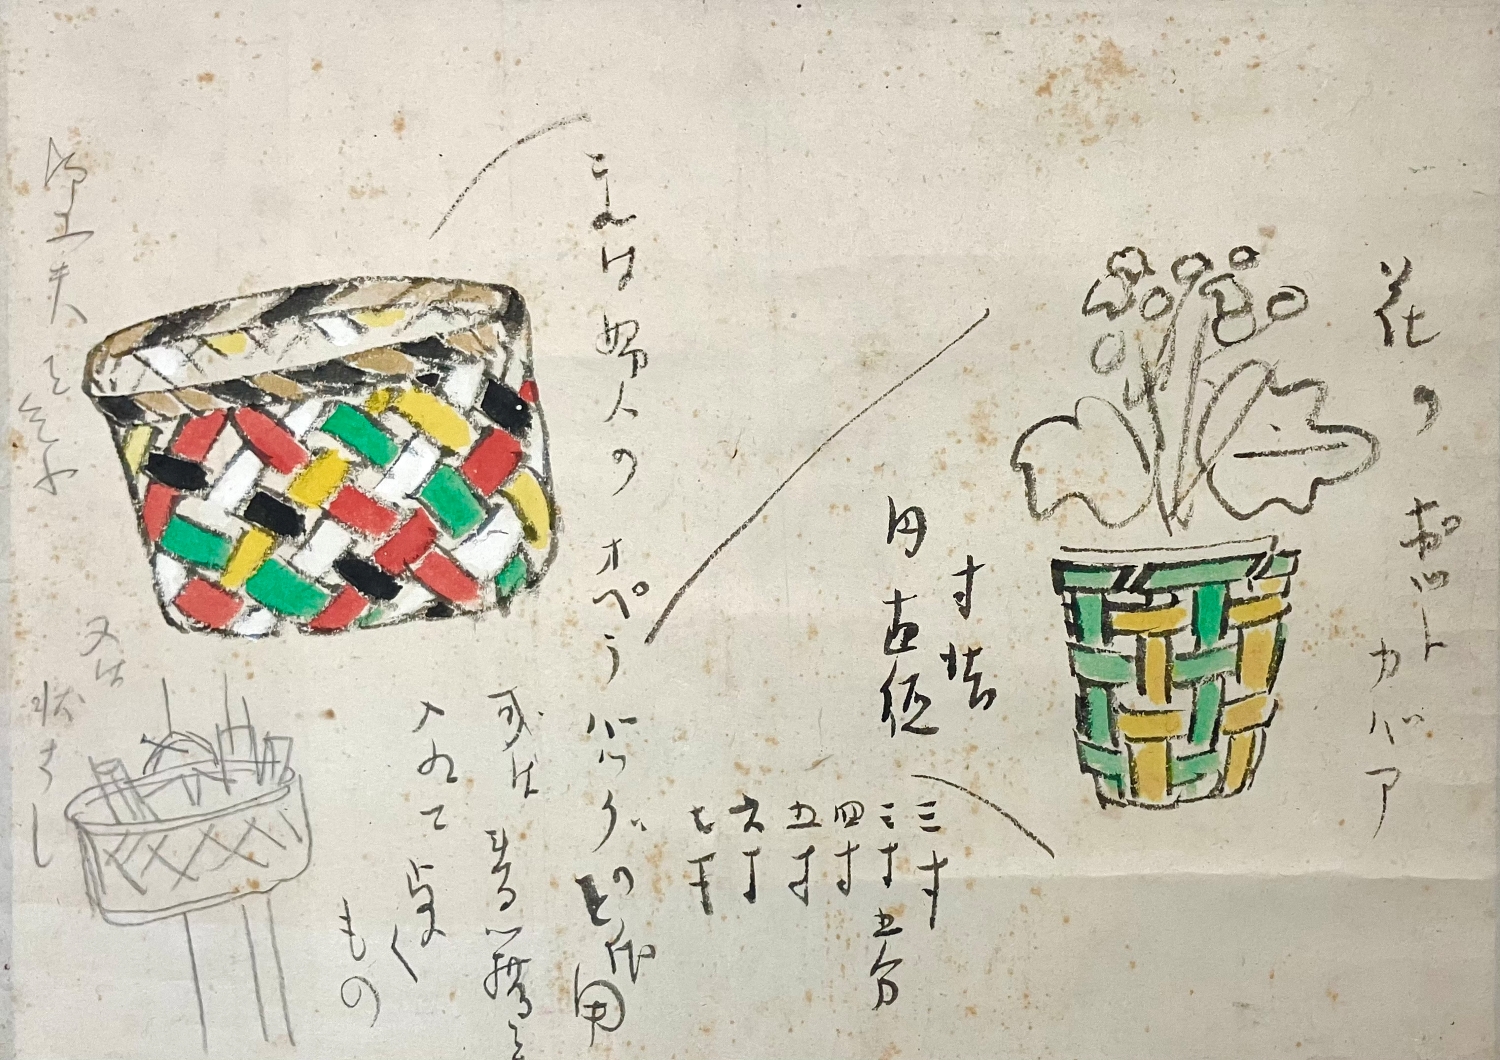 花ノ
ポット
カバア
寸法
円直径
三寸
三寸五分
四寸
五寸
六寸
七寸
これは婦人のオペラバッグの代用
或は
入れて置く
もの
御工夫を乞ふ
又は